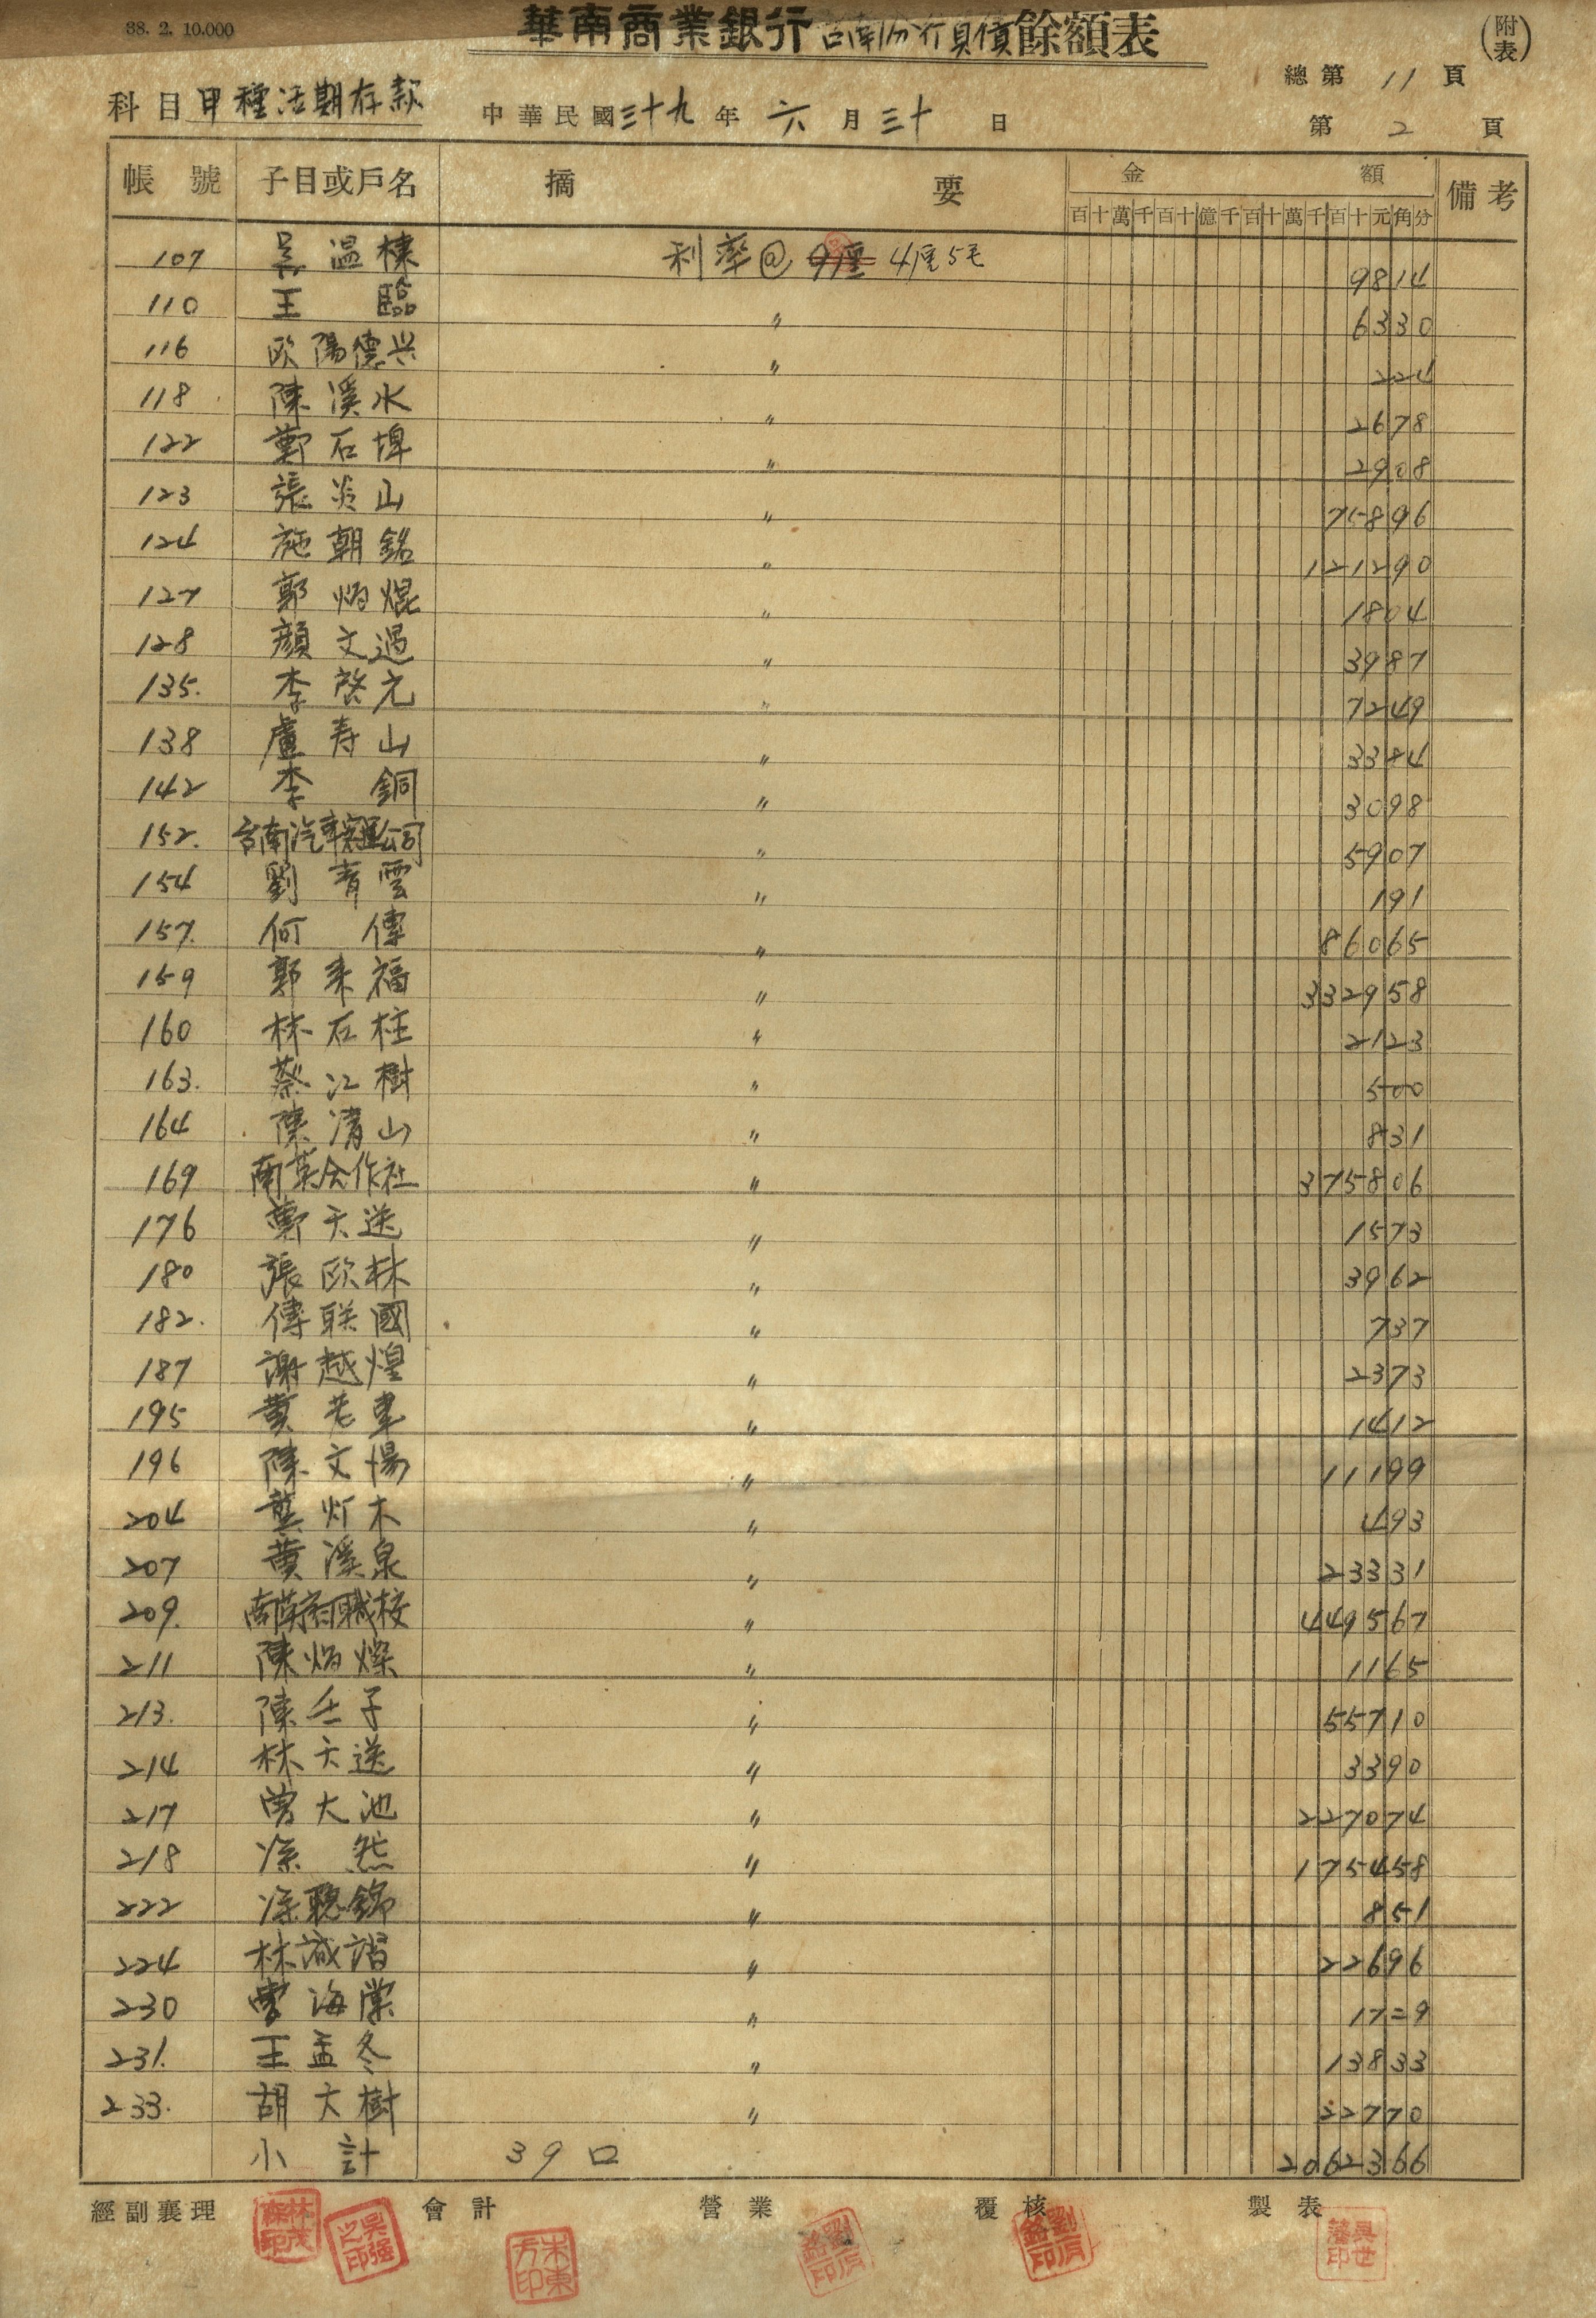 38. 2. 10.000
華南商業銀行台南分行負債餘額表
(附表)
總第 11 頁
科目 甲種活期存款 中華民國三十九年 六月三十日
第 2 頁
帳號 子目或戶名 摘要 金額 備考
百十萬千百十億千百十萬千百十元角分
107 吳温棟 利率@ 4厘5毛 9814
110 王臨 〃 6330
116 欧陽德兴 〃 224
118 陳溪水 〃 2678
122 鄭石埤 〃 2908
123 張炎山 〃 75896
124 施朝銘 〃 121290
127 郭炳焜 〃 1804
128 顏文過 〃 3987
135. 李啓元 〃 7249
138 盧寿山 〃 3384
142 李銅 〃 3098
152. 台南汽車貨運公司 〃 5907
154 劉青雲 〃 191
157. 何傳 〃 86065
159 郭来福 〃 332958
160 林石柱 〃 2123
163. 蔡江樹 〃 500
164 陳清山 〃 831
169 南英合作社 〃 375806
176 鄭天送 〃 1573
180 張欧林 〃 3962
182. 傅联國 〃 737
187 謝越煌 〃 2373
195 黃老車 〃 1412
196 陳文惕 〃 11199
204 龔灯木 〃 493
207 黃溪泉 〃 23331
209. 南英商職校 〃 449567
211 陳炳燦 〃 1165
213. 陳壬子 〃 55710
214 林天送 〃 3390
217 曾大池 〃 227074
218 涂然 〃 175458
222 涂聰錦 〃 851
224 林誠諧 〃 22696
230 曾海棠 〃 1729
231. 王孟冬 〃 13833
233. 胡大樹 〃 22770
小計 39口 2062366
經副襄理 會計 營業 覆核 製表
林茂森印
吳強之印
朱東方印
吳世藩印